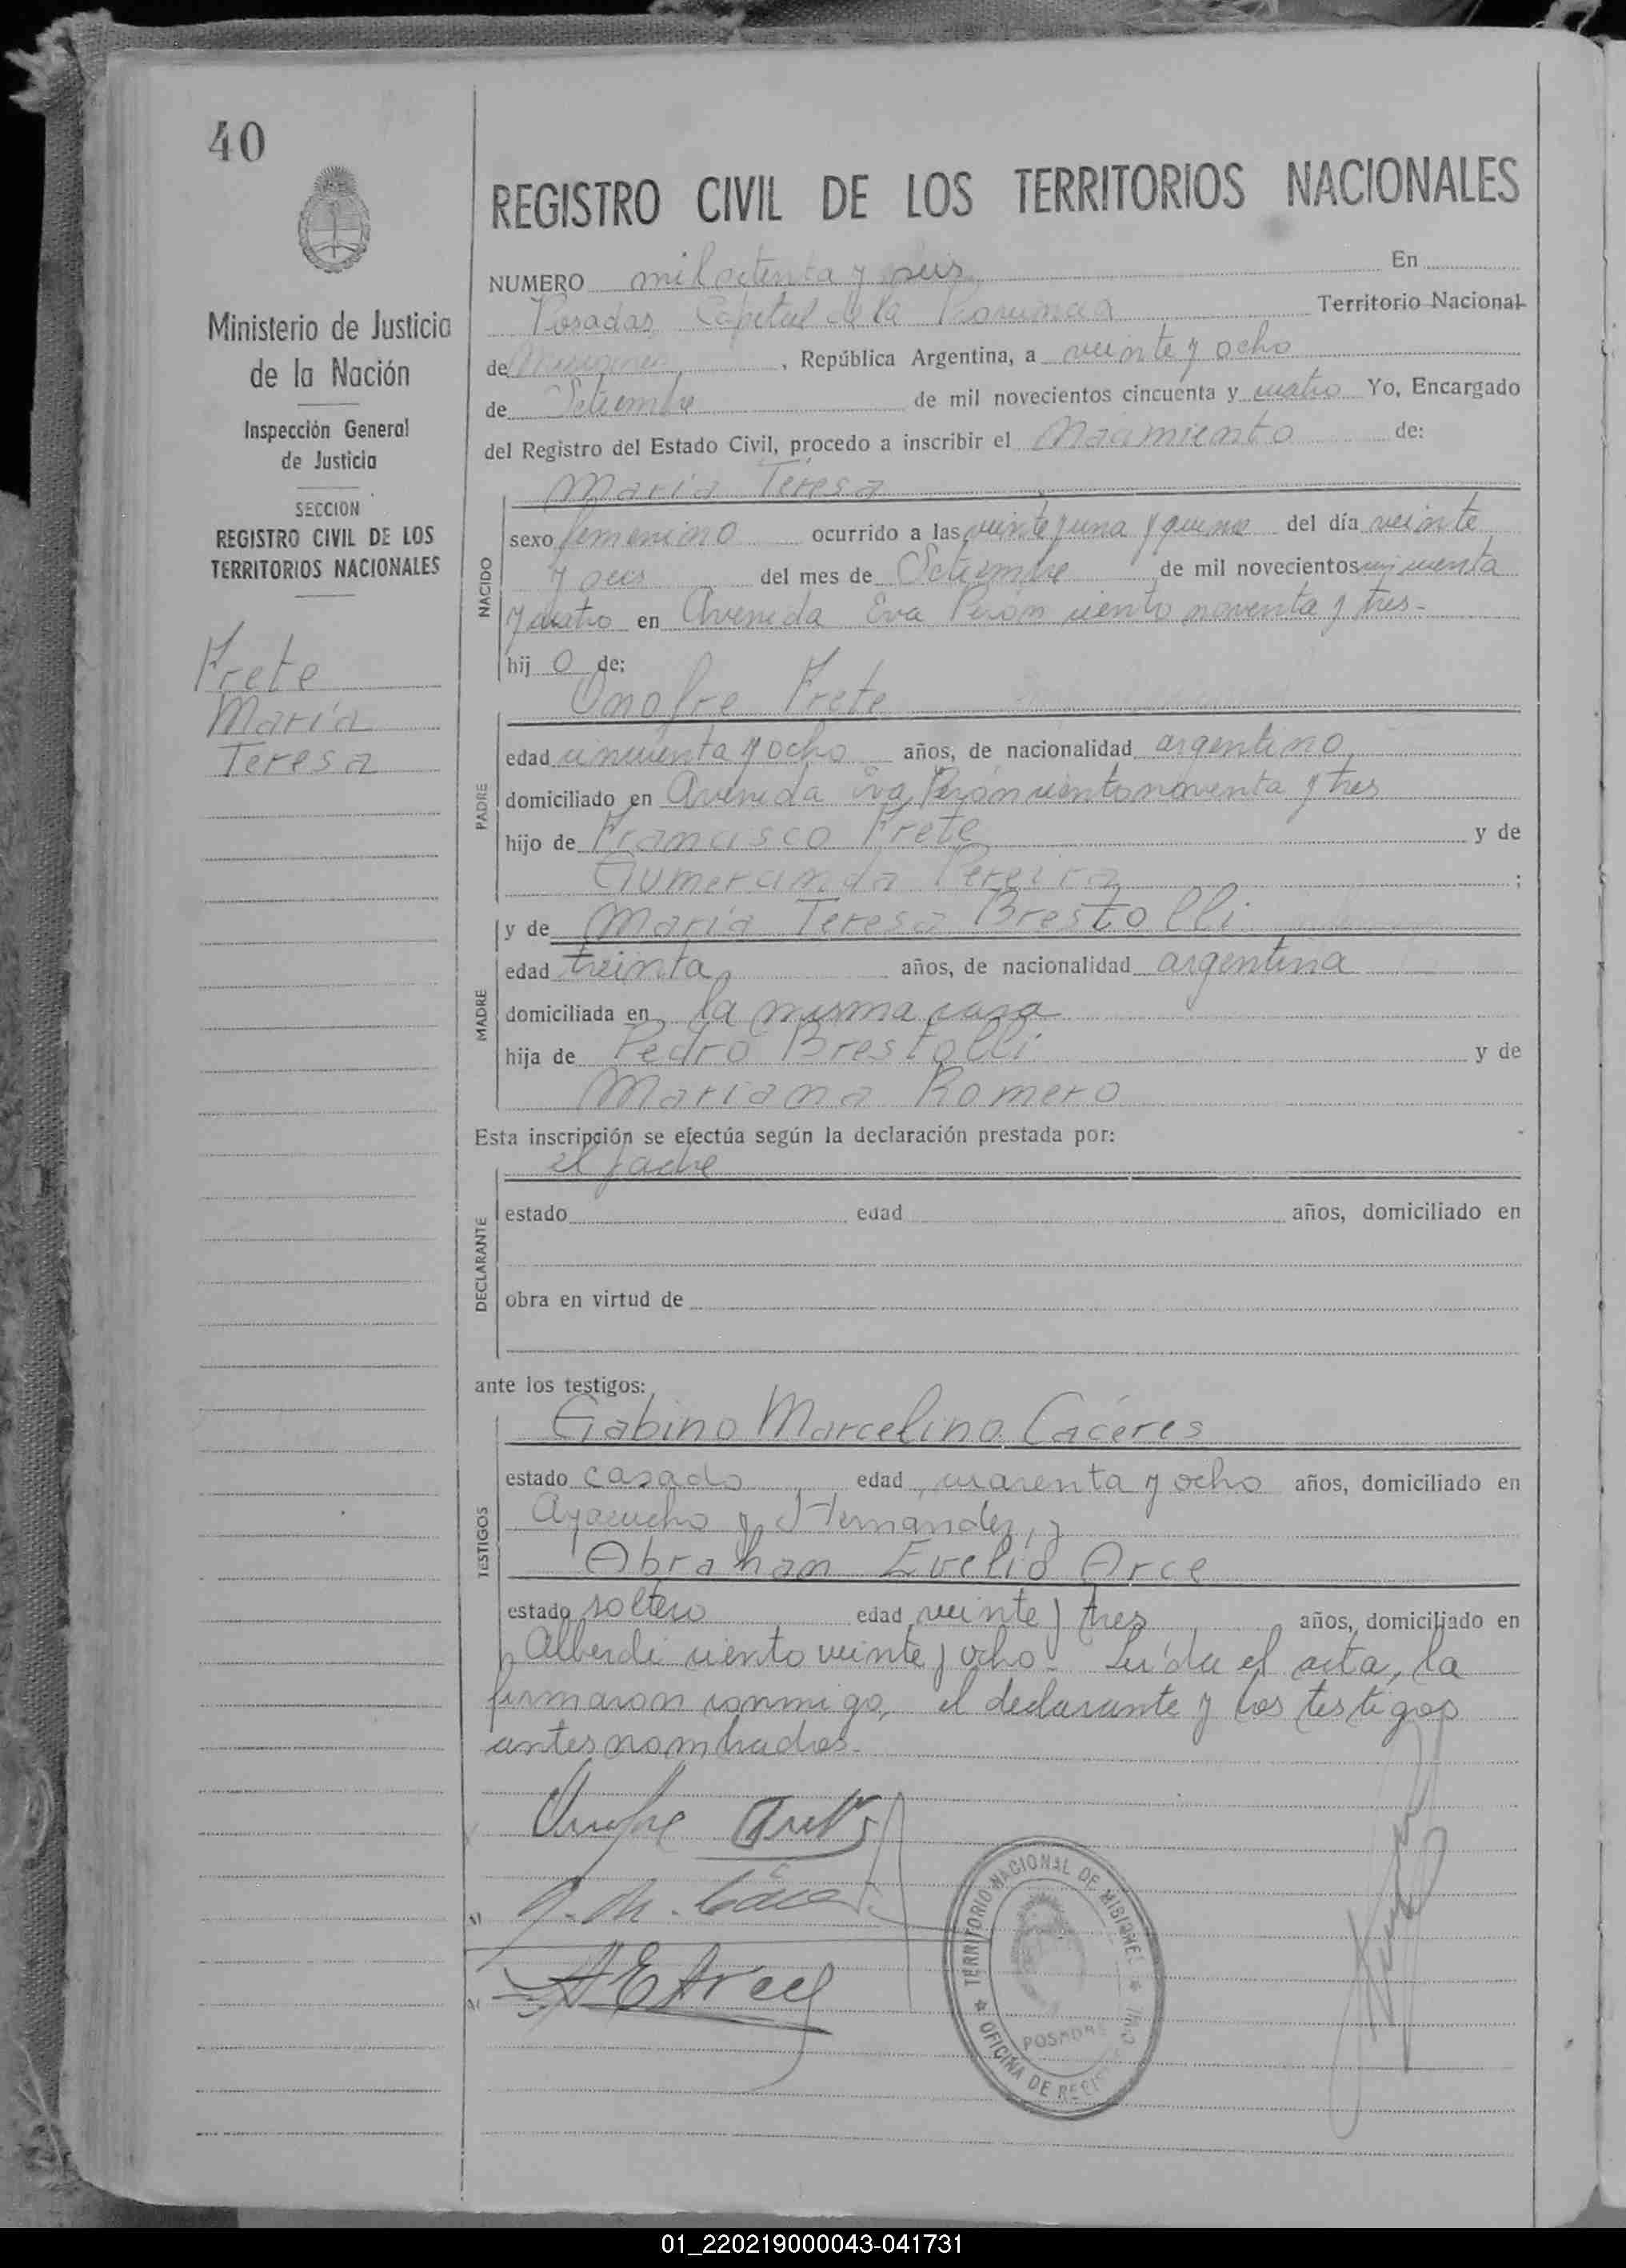 40
REGISTRO CIVIL DE LOS TERRITORIOS NACIONALES
Ministerio de Justicia
de la Nación
Inspección General
de Justicia
SECCION
REGISTRO CIVIL DE LOS
TERRITORIOS NACIONALES
Frete
María
Teresa
NUMERO mil setenta y seis En
Posadas, Capital de la Provincia Territorio Nacional
de Misiones, República Argentina, a veinte y ocho
de Setiembre de mil novecientos cincuenta y cuatro Yo, Encargado
del Registro del Estado Civil, procedo a inscribir el Nacimiento de:
María Teresa
NACIDO
sexo femenino ocurrido a las veinte y una y quince del día veinte
y seis del mes de Setiembre de mil novecientos cincuenta
y cuatro en Avenida Eva Perón ciento noventa y tres-
hij o de:
Onofre Frete
PADRE
edad cincuenta y ocho años, de nacionalidad argentino
domiciliado en Avenida Eva Perón ciento noventa y tres
hijo de Francisco Frete y de
Gumercinda Pereira ;
y de María Teresa Brestolli
MADRE
edad treinta años, de nacionalidad argentina
domiciliada en la misma casa
hija de Pedro Brestolli y de
Mariana Romero
Esta inscripción se efectúa según la declaración prestada por:
el padre
DECLARANTE
estado edad años, domiciliado en
obra en virtud de
ante los testigos:
Gabino Marcelino Cáceres
TESTIGOS
estado casado edad cuarenta y ocho años, domiciliado en
Ayacucho y Hernandez, y
Abrahan Evelio Arce
estado soltero edad veinte y tres años, domiciliado en
Alberdi ciento veinte y ocho- Leída el acta, la
firmaron conmigo, el declarante y los testigos
antes nombrados.-
Onofre Frete
G. M. Cácer
A E Arce
TERRITORIO NACIONAL DE MISIONES
OFICINA DE REGIS
POSADAS
01_220219000043-041731